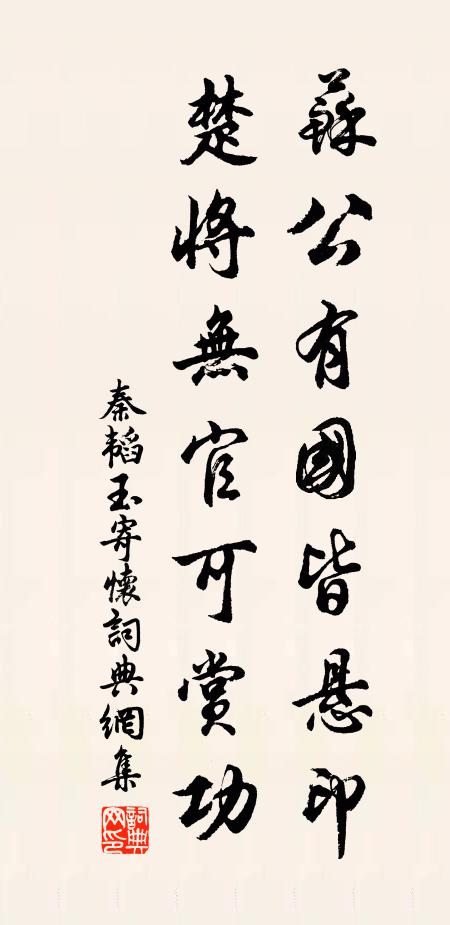 蘇公有國皆悬印
楚將無官可賞功
秦韬玉寄懷詞典網集
詞典網印